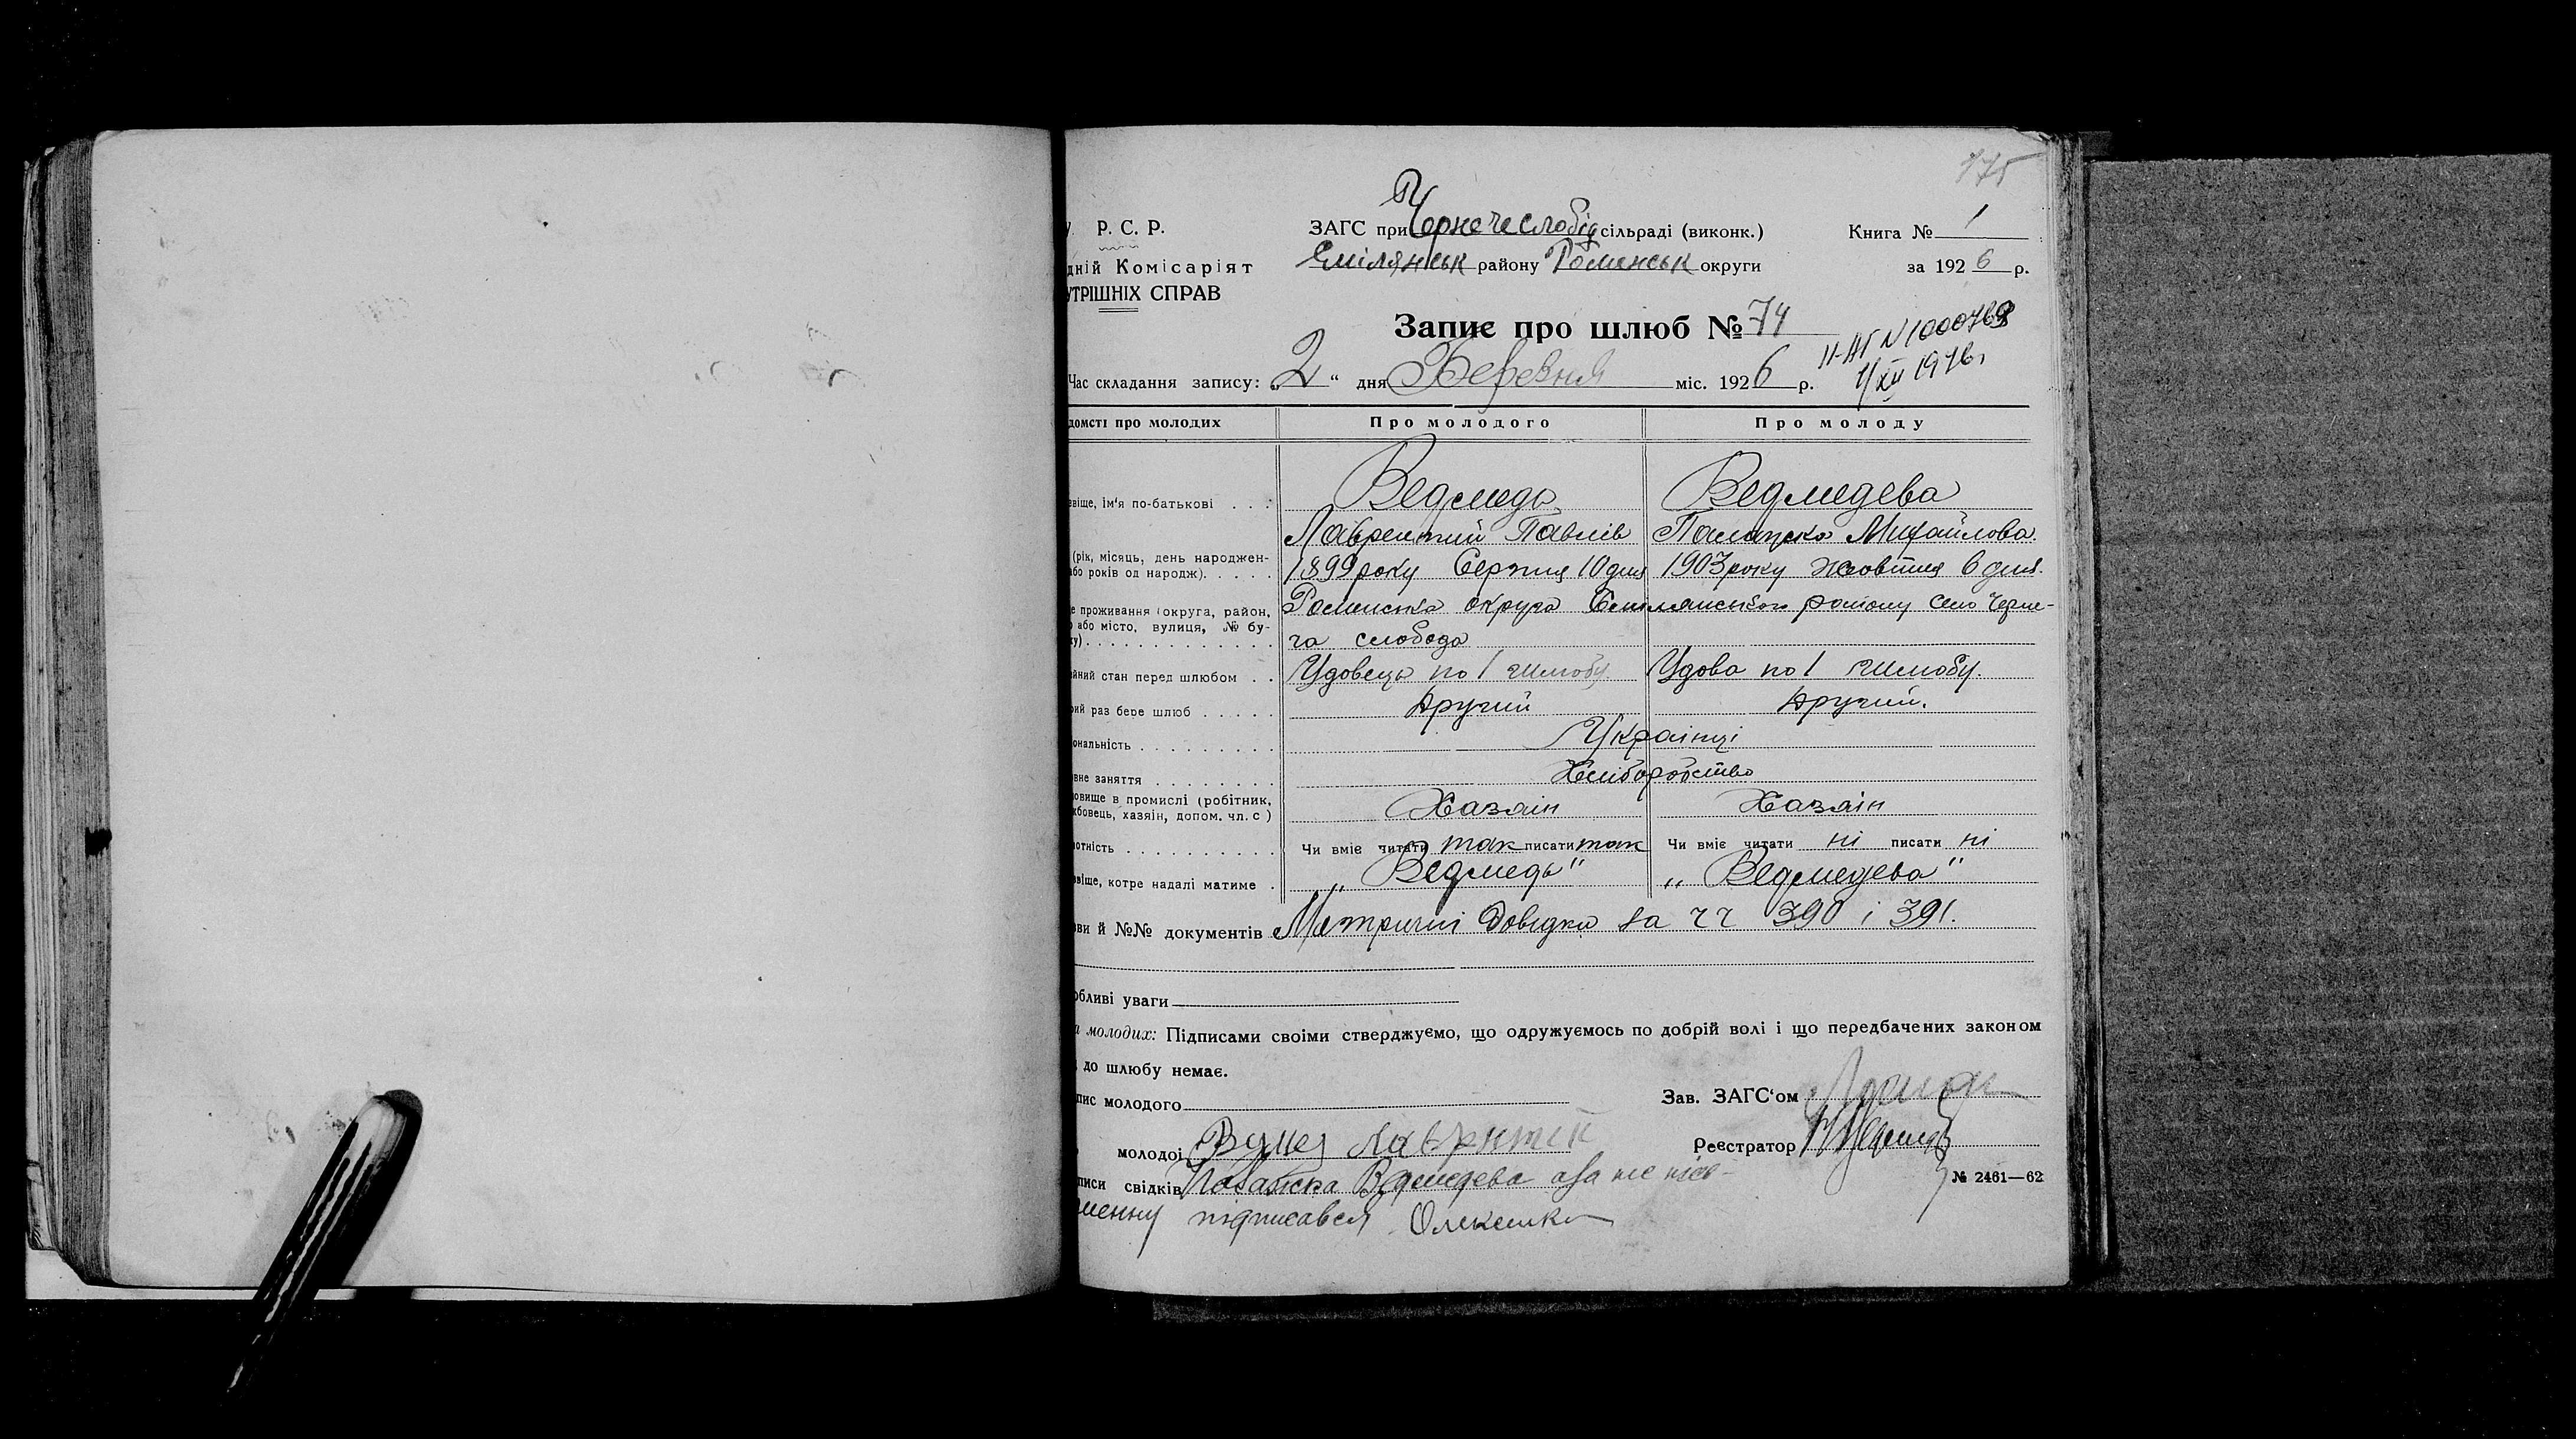 175
У. Р. С. Р. ЗАГС при Чернечеслобід сільраді (виконк.) Книга № 1
дній Комісаріят Смілянськ району Роменськ округи за 1926 р.
УТРІШНІХ СПРАВ
Запис про шлюб № 74
II-АГ N 1000769
1/XII 1976
Час складання запису: „2“ дня Березня міс. 1926 р.
домсті про молодих Про молодого Про молоду
звіще, ім'я по-батькові . . . Ведмедь Ведмедева
Лаврентий Павлів Палажка Михайлова
(рік, місяць, день народжен-
або років од народж). . . . . 1899 року Серпня 10 дня 1903 року Жовтня 6 дня.
е проживання (округа, район, Роменська округа Смілянського району село Черне-
о або місто, вулиця, № бу-
ку) . . . . . . . . . . . . . ча слобода
йний стан перед шлюбом . . Удовець по 1 шлюбу Удова по 1 шлюбу.
рий раз бере шлюб . . . . . Другий Другий.
ональність . . . . . . . . . Українці
вне заняття . . . . . . . . Хліборобство
овище в промислі (робітник,
жбовець, хазяїн, допом. чл. с ) Хазяін Хазяін
отність . . . . . . . . . . Чи вміє читати так писати так Чи вміє читати ні писати ні
звіще, котре надалі матиме . „Ведмедь“ „Ведмедева“
зви й №№ документів Метричні довідки за чч 390 і 391.
обливі уваги
и молодих: Підписами своіми стверджуємо, що одружуємось по добрій волі і що передбачених законом
д до шлюбу немає.
пис молодого Зав. ЗАГС'ом
молодоі Лаврнтій Реєстратор
писи свідків Палажка Ведмедева а за не пись-
менну підписався Олексенко
№ 2461—62